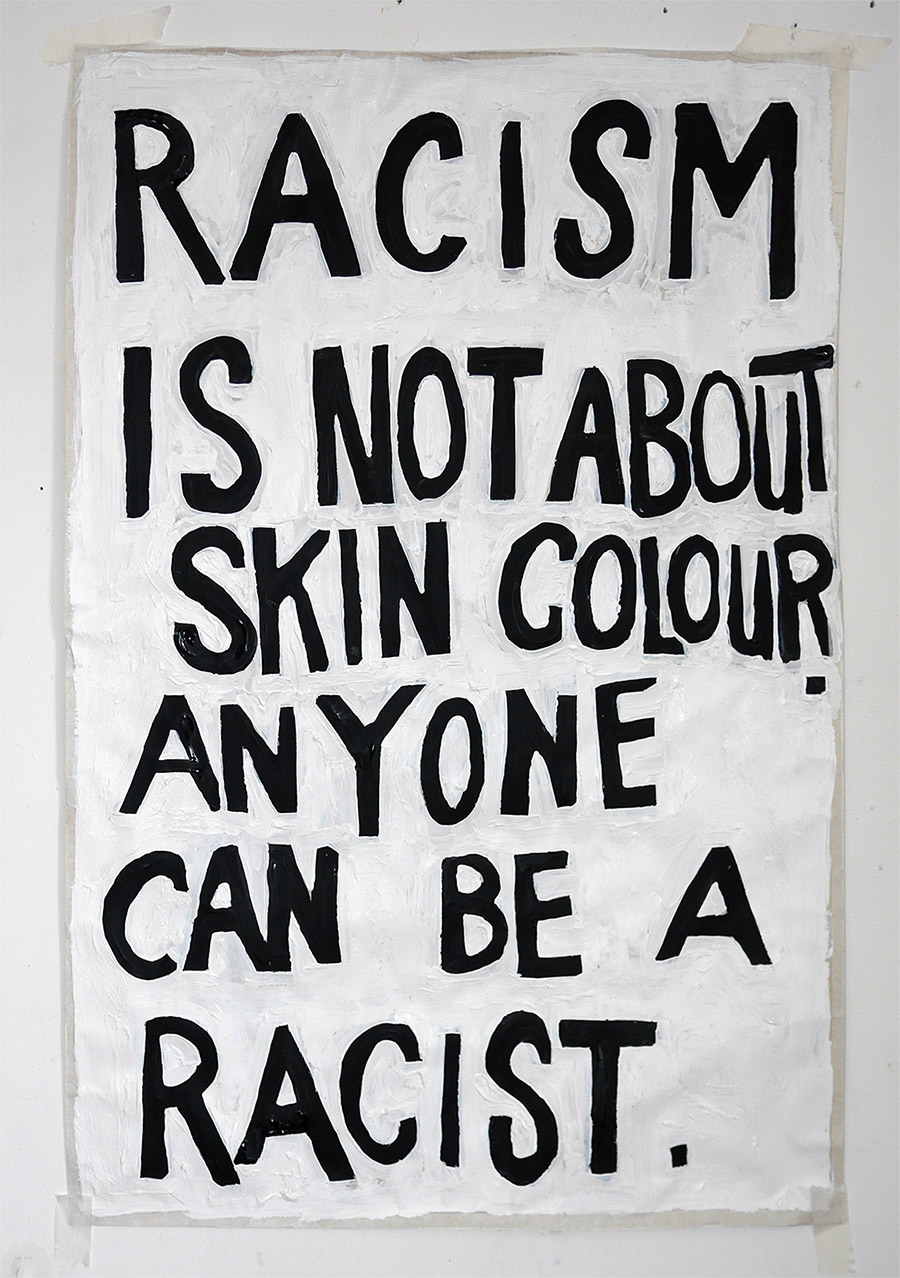 RACISM
IS NOT ABOUT
SKIN COLOUR.
ANYONE
CAN BE A
RACIST.